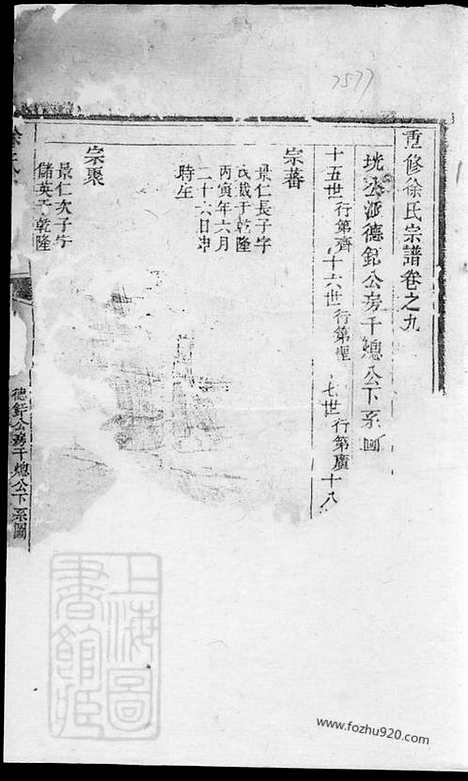 7577
重修徐氏宗譜卷之九
公派德釬公房千總公下系圖
十五世行第齊 十六世行第 七世行第廣 十八
宗蕃
景仁長子字
于乾隆
丙寅年六月
二十六日
時生
宗聚
景仁次子字
儲英 乾隆
德釬公房千總公下系圖
上海圖書館
www.fozhu920.com